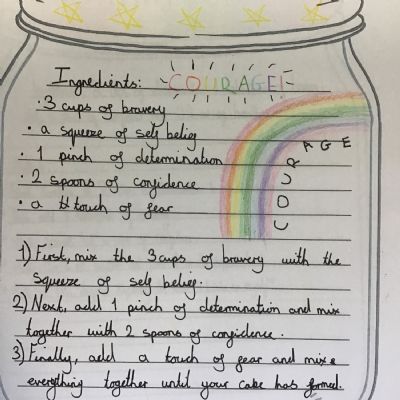 Ingredients: COURAGE!
· 3 cups of bravery
· a squeeze of self belief
· 1 pinch of determination
· 2 spoons of confidence
· a touch of fear
COURAGE
1) First, mix the 3 cups of bravery with the
squeeze of self belief.
2) Next, add 1 pinch of determination and mix
together with 2 spoons of confidence.
3) Finally, add a touch of fear and mix
everything together until your cake has formed.